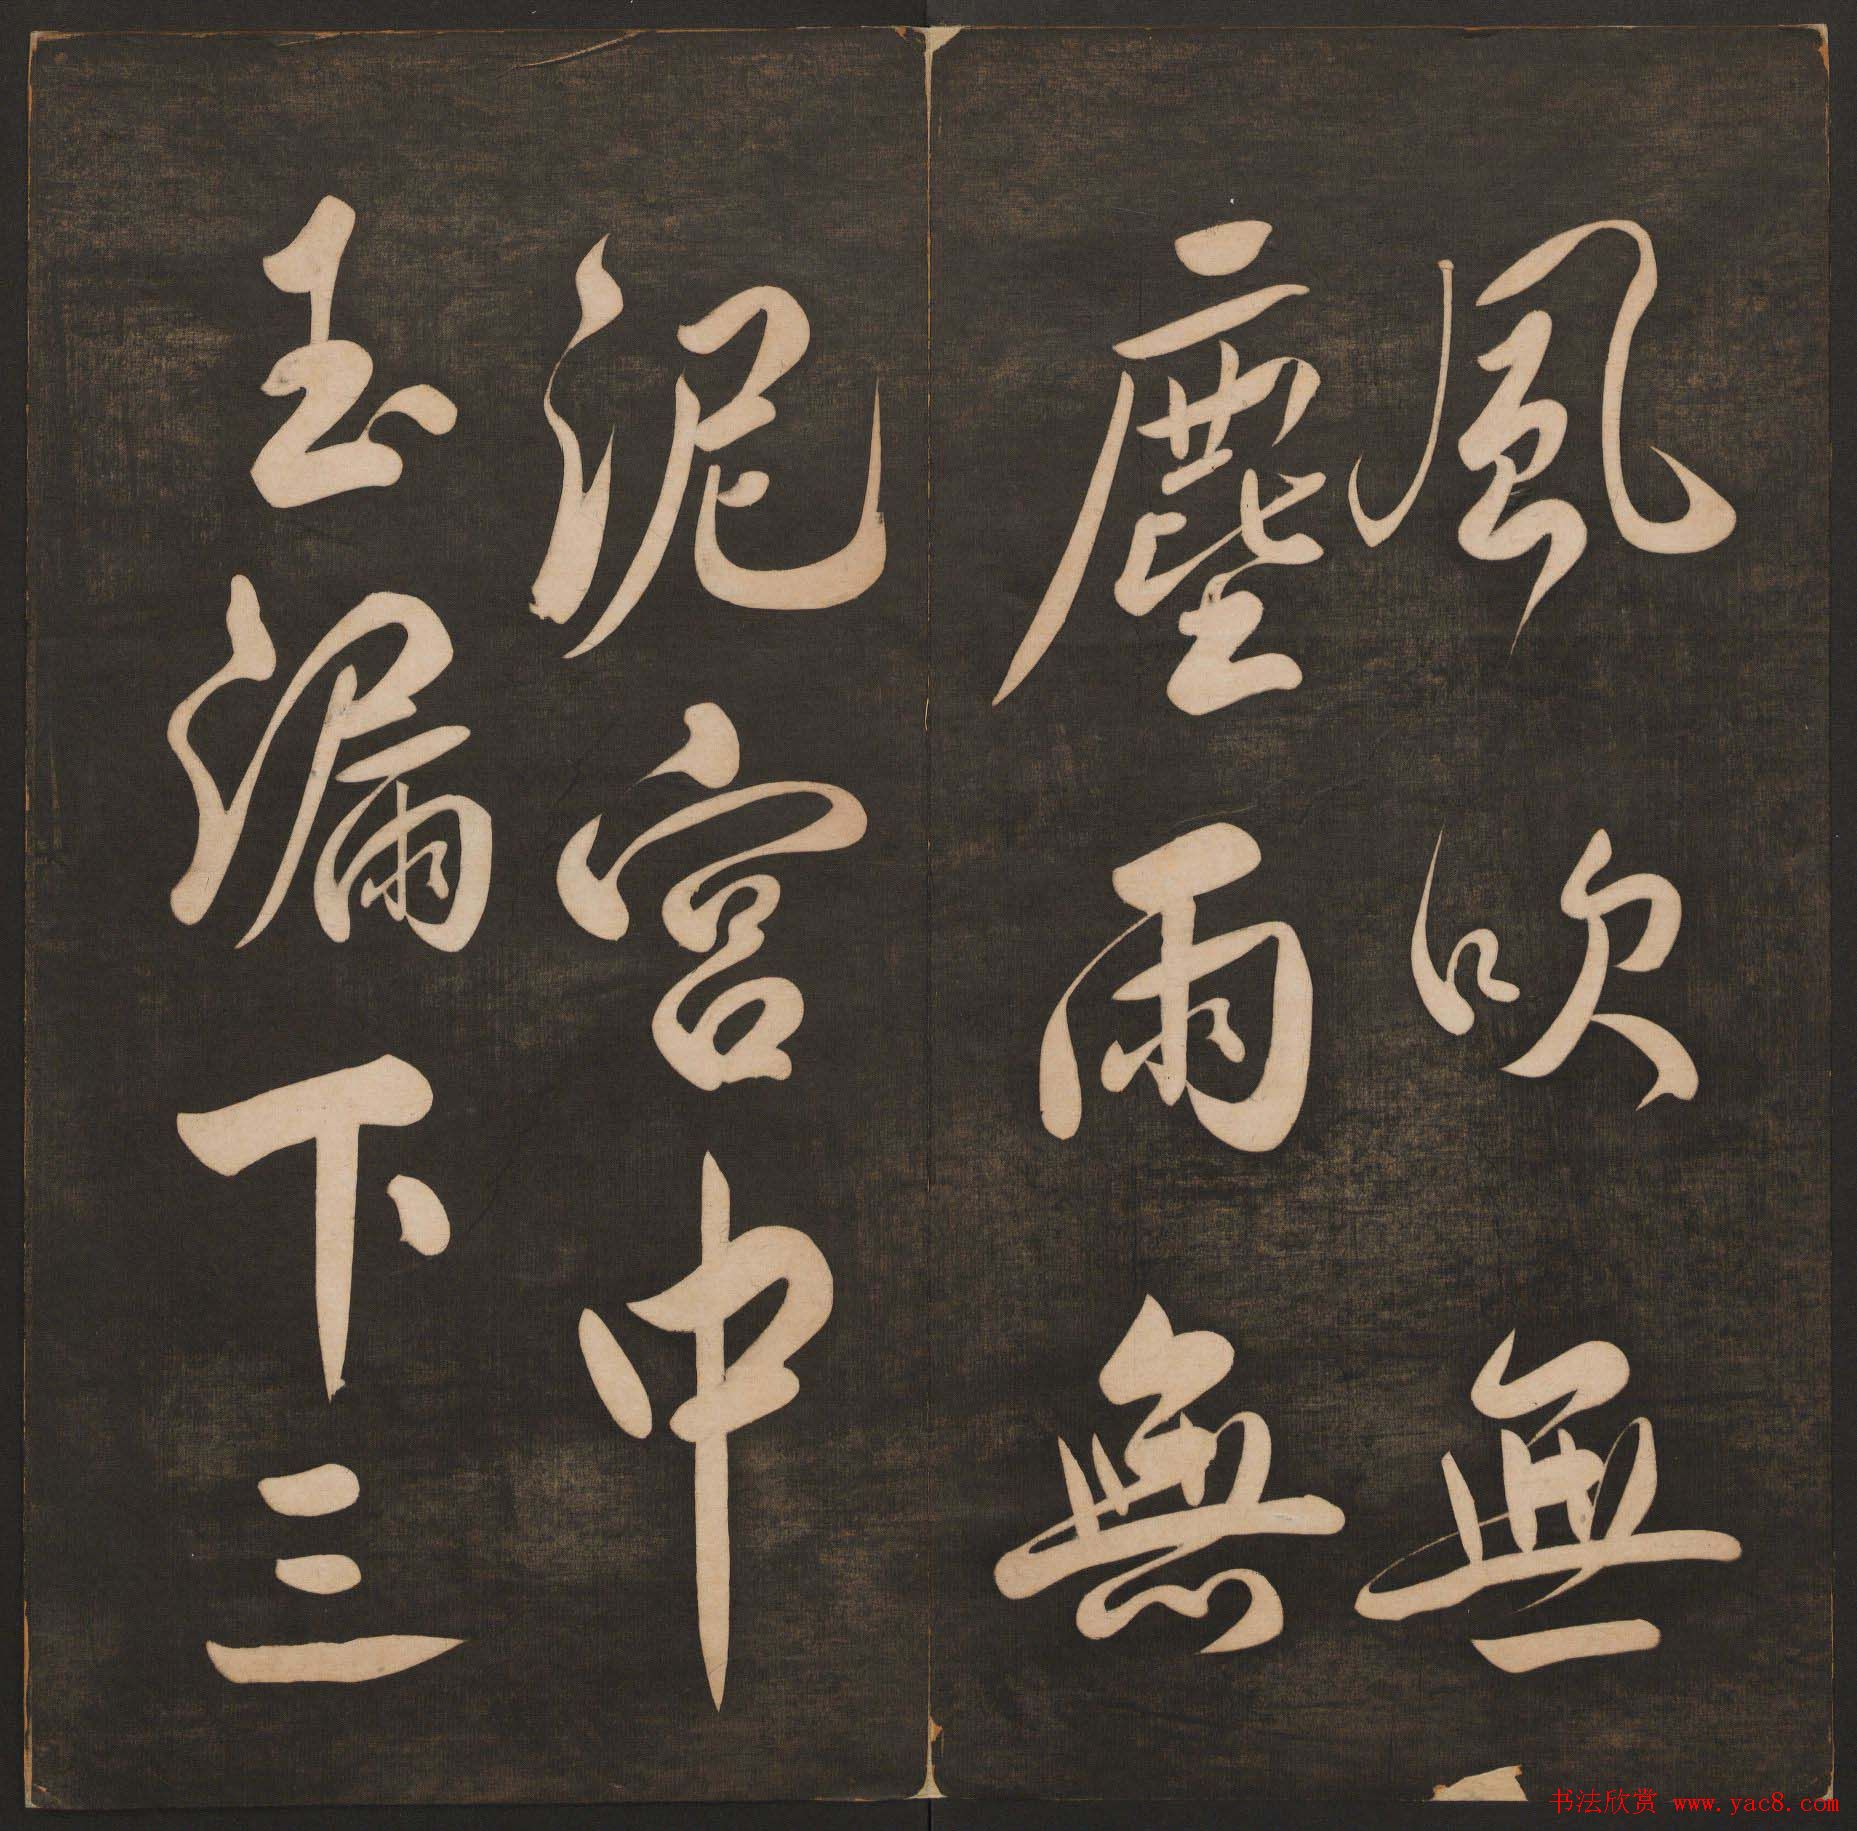 風吹無
塵雨無
泥宮中
玉漏下三
书法欣赏 www.yac8.com